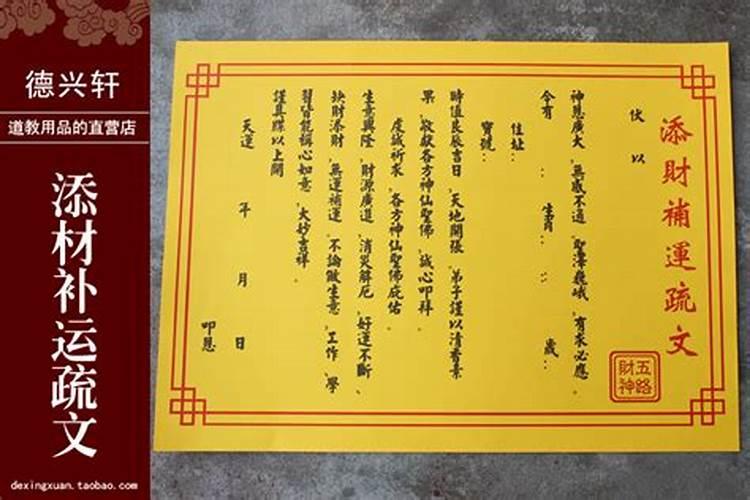 德兴轩
道教用品的直营店
添材补运疏文
dexingxuan.taobao.com
添財補運疏文
五路
財神
伏以
神恩廣大 無感不通 聖澤巍峨 有求必應。
今有 : 生肖: : 歲:
住址:
寶號:
時值良辰吉日 天地開張 弟子謹以清香素
果 敬献各方神仙聖佛 誠心叩拜
虔誠祈求 各方神仙聖佛庇佑
生意興隆 財源廣進 消災解厄 好運不斷、
缺財添財 無運補運 不論做生意 工作 學
習皆能稱心如意 大妙吉祥。
謹具牒以上聞
天運 年 月 日
叩恩